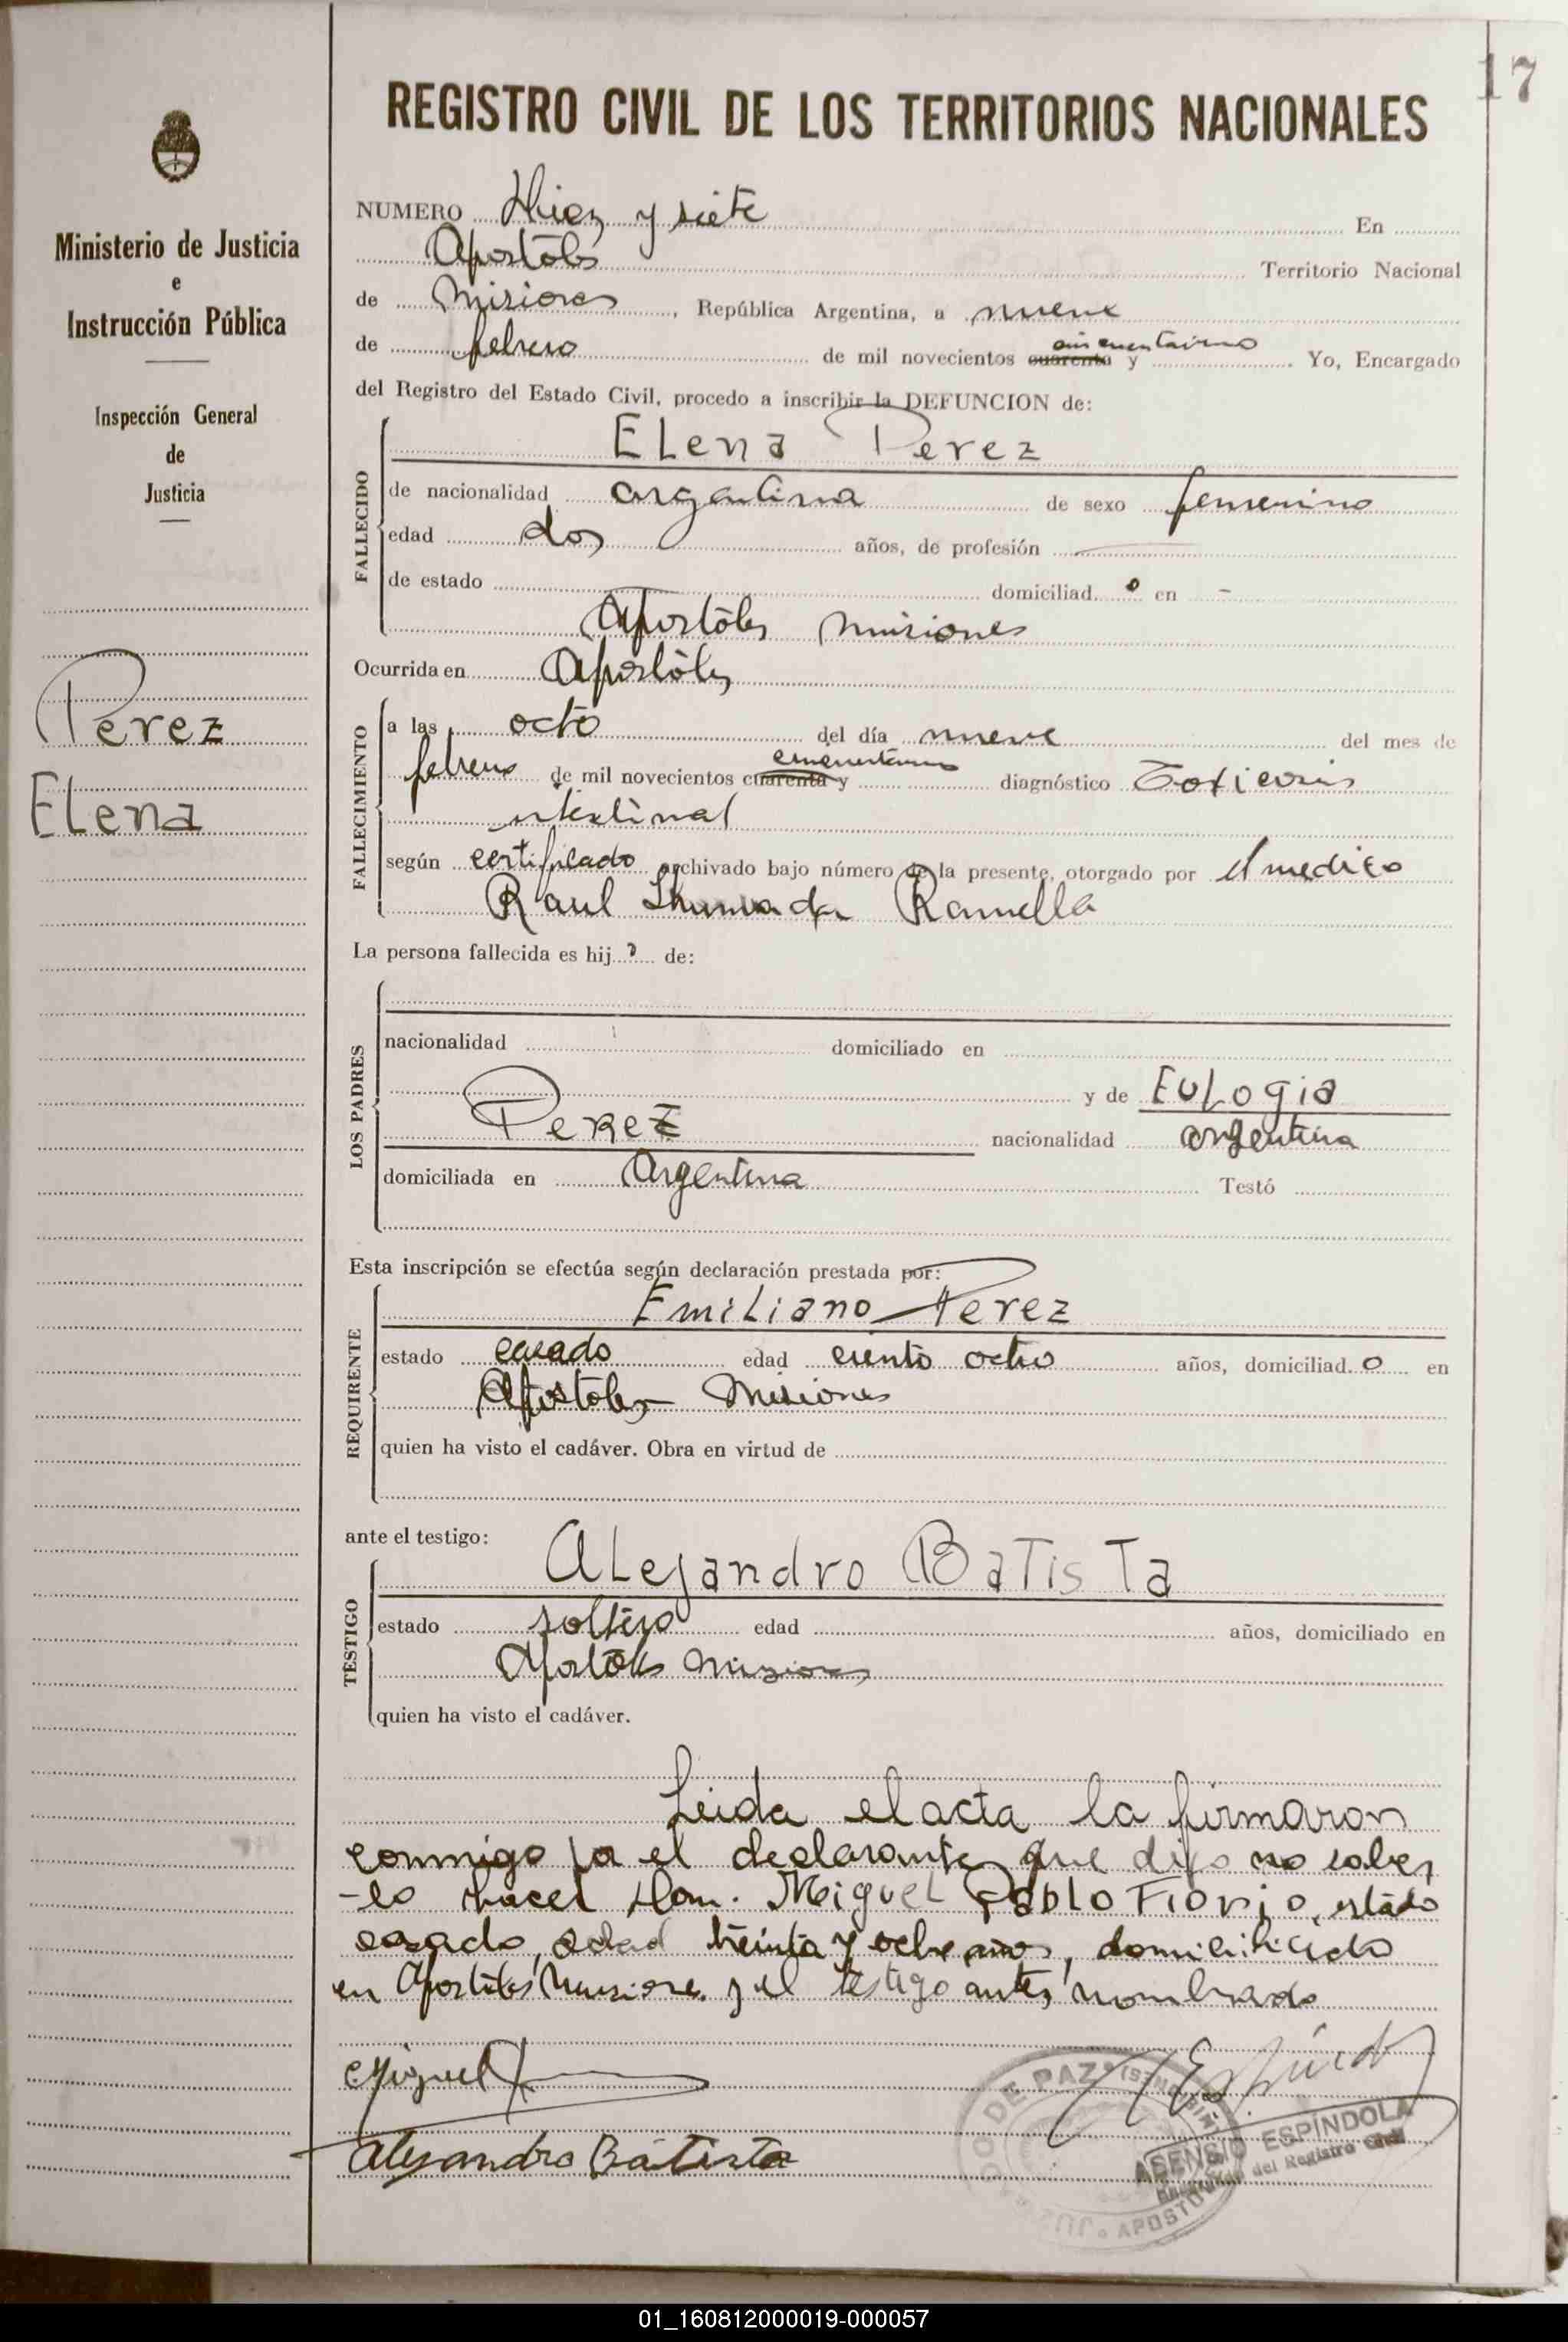 17
REGISTRO CIVIL DE LOS TERRITORIOS NACIONALES
Ministerio de Justicia
e
Instrucción Pública
Inspección General
de
Justicia
Perez
Elena
NUMERO Diez y siete En
Apostóles Territorio Nacional
de Misiones, República Argentina, a nueve
de febrero de mil novecientos cuarenta y cincuentaiuno Yo, Encargado
del Registro del Estado Civil, procedo a inscribir la DEFUNCION de:
FALLECIDO
Elena Perez
de nacionalidad argentina de sexo femenino
edad dos años, de profesión
de estado domiciliad o en -
Apostóles misiones
Ocurrida en Apostóles
FALLECIMIENTO
a las octo del día nueve del mes de
febrero de mil novecientos cuarenta y diagnóstico
intestinal
según certificado archivado bajo número de la presente, otorgado por el medico
Raul Ramella
La persona fallecida es hij a de:
LOS PADRES
nacionalidad domiciliado en
y de Eulogia
Perez nacionalidad argentina
domiciliada en Argentina Testó
Esta inscripción se efectúa según declaración prestada por:
REQUIRENTE
Emiliano Perez
estado casado edad ciento octo años, domiciliad o en
Apostoles Misiones
quien ha visto el cadáver. Obra en virtud de
ante el testigo:
TESTIGO
Alejandro Batista
estado soltero edad años, domiciliado en
Apostóles Misiones
quien ha visto el cadáver.
Leida el acta la firmaron
conmigo el declarante que dijo no saber
-lo hacer Don. Miguel Pablo Fiorio, estado
casado, edad treinta y ocho años, domicilicado
en Apostóles Misiones y el testigo antes nombrado
Miguel
Alejandro Batista
DE PAZ
APOSTO
ASENSIO ESPÍNDOLA
Encargado del Registro Civil
01_160812000019-000057